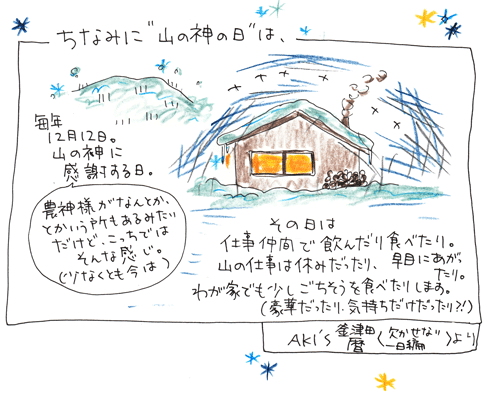 ちなみに"山の神の日"は、
毎年
12月12日。
山の神に
感謝する日。
農神様がなんとか、
とかいう所もあるみたい
だけど、こっちでは
そんな感じ。
(少なくとも今は)
その日は
仕事仲間で飲んだり食べたり。
山の仕事は休みだったり、早目にあがったり。
わが家でも少しごちそうを食べたりします。
(豪華だったり、気持ちだけだったり?!)
AKI's 釜津田暦〈欠かせない一日編〉より